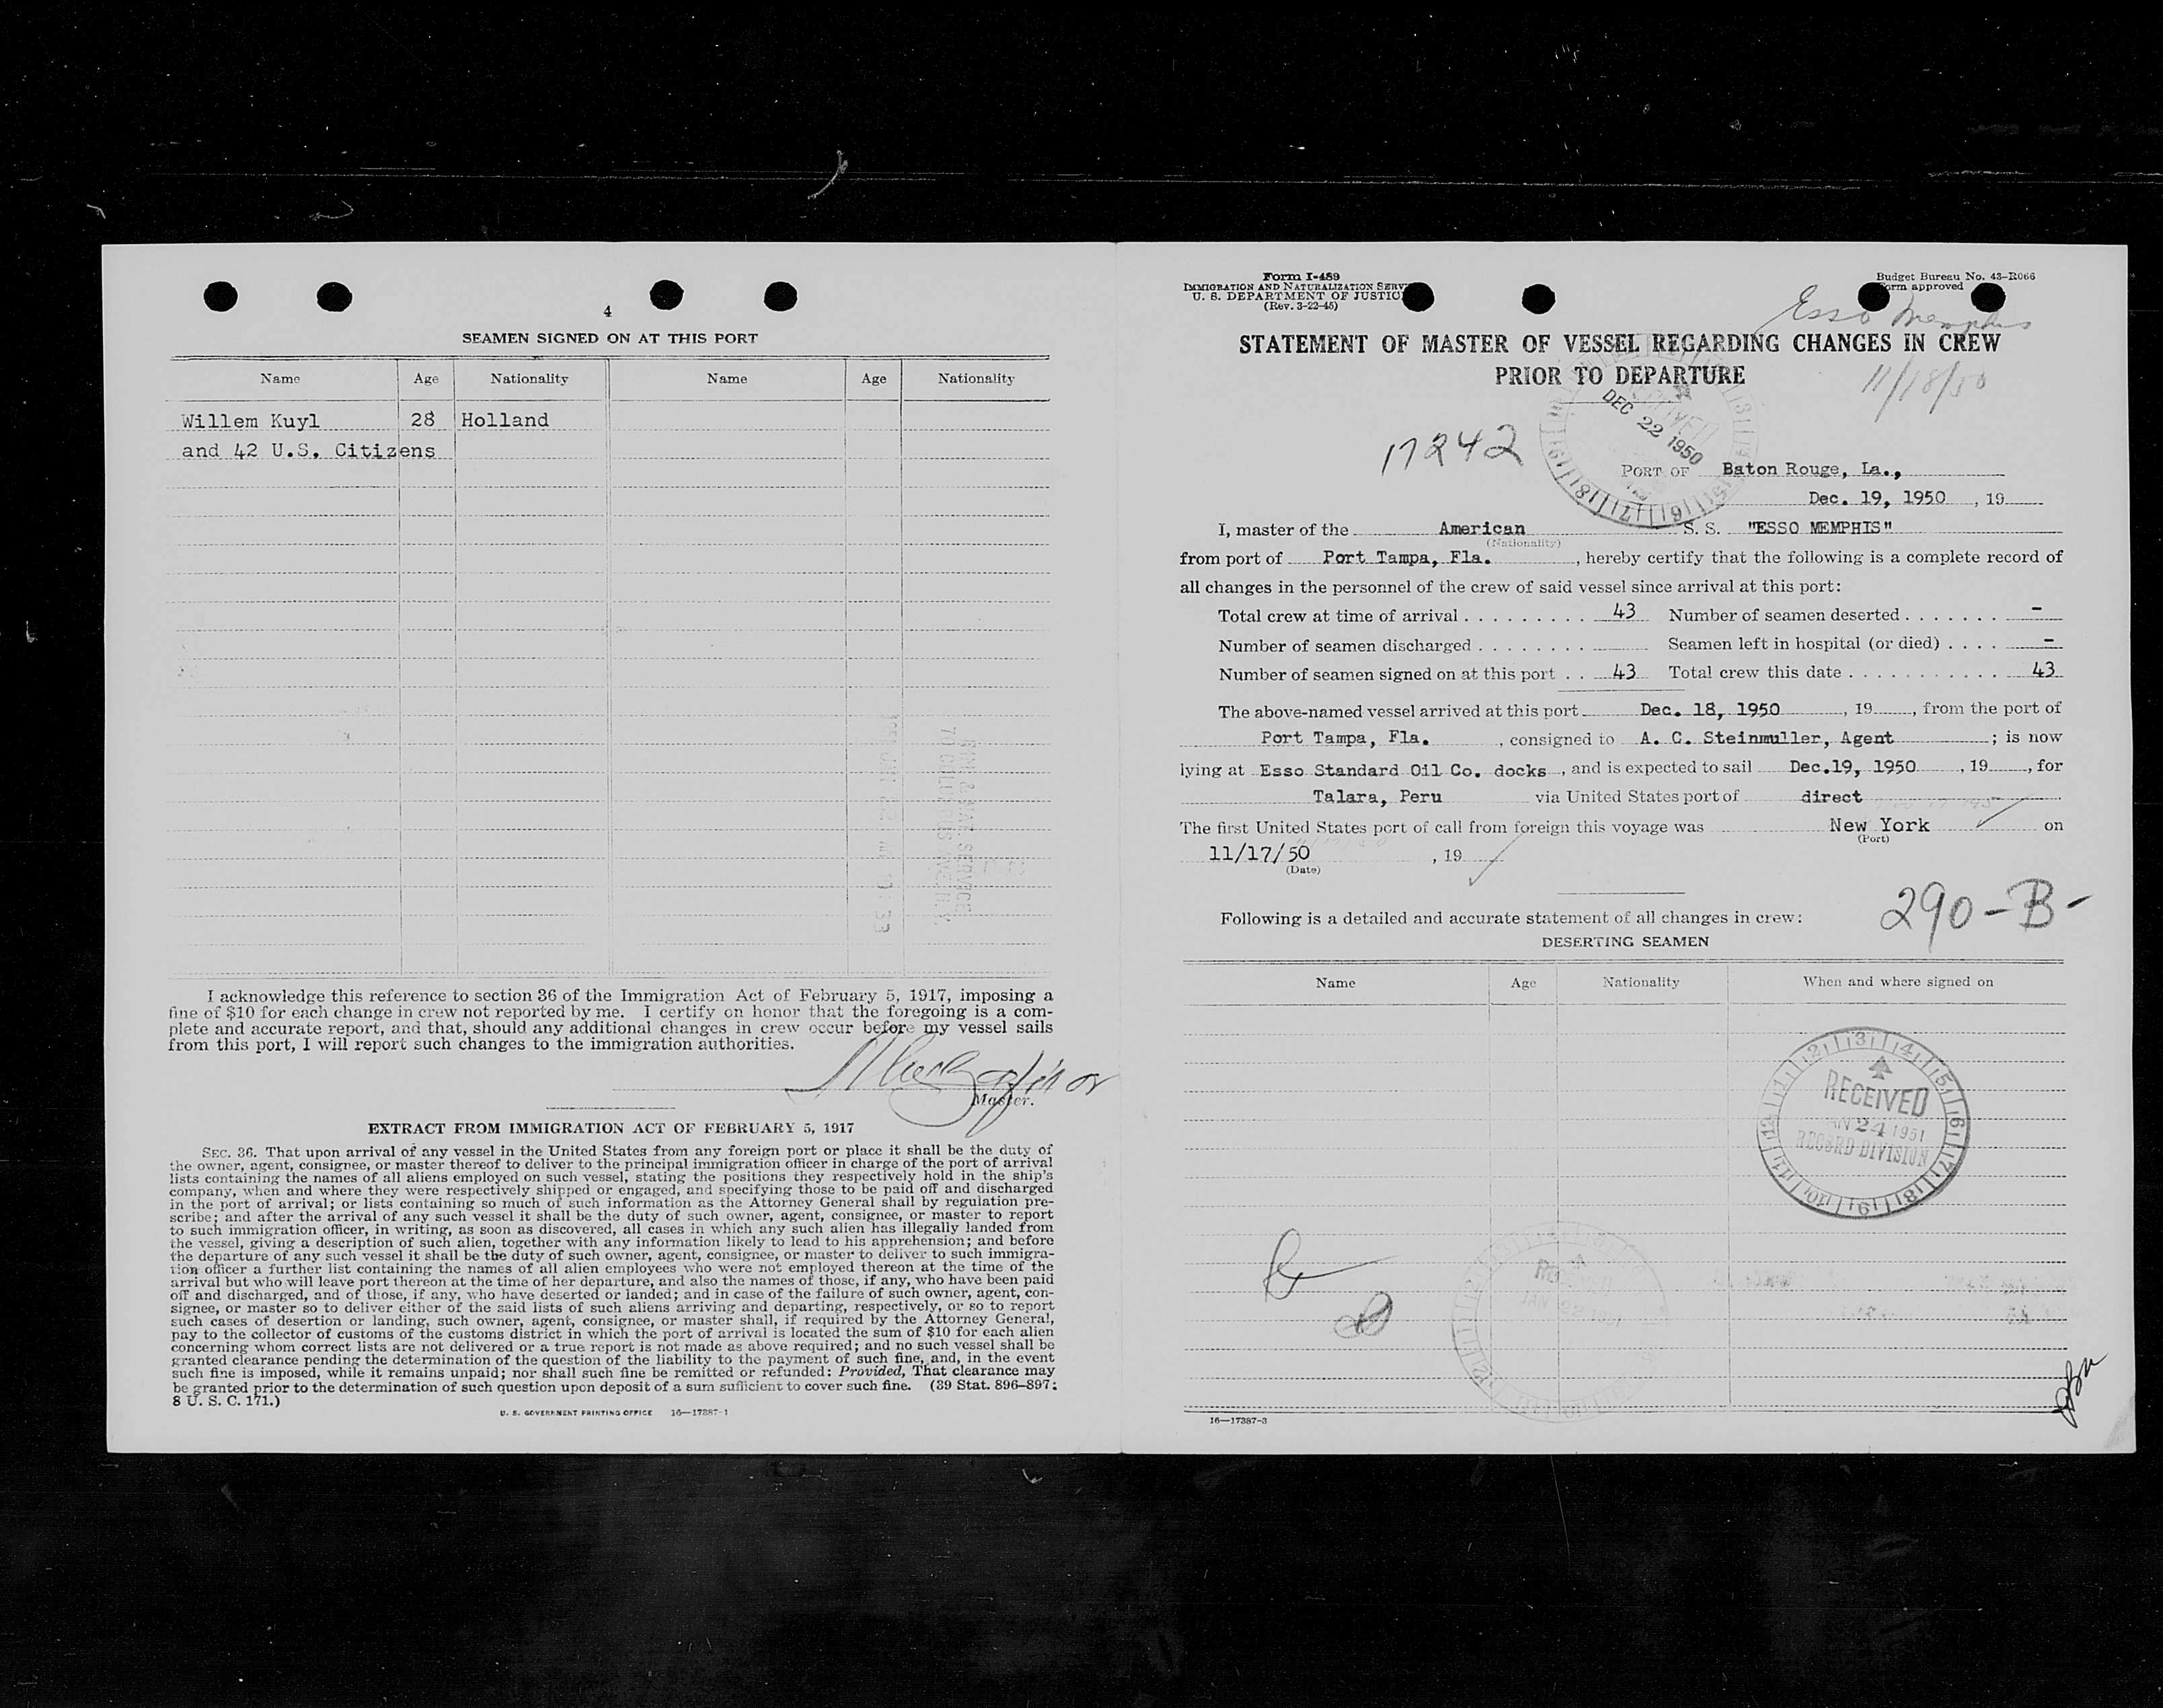 4
SEAMEN SIGNED ON AT THIS PORT
Name Age Nationality Name Age Nationality
Willem Kuyl 28 Holland
and 42 U.S. Citizens
I acknowledge this reference to section 36 of the Immigration Act of February 5, 1917, imposing a
fine of $10 for each change in crew not reported by me. I certify on honor that the foregoing is a com-
plete and accurate report, and that, should any additional changes in crew occur before my vessel sails
from this port, I will report such changes to the immigration authorities.
Master.
EXTRACT FROM IMMIGRATION ACT OF FEBRUARY 5, 1917
SEC. 36. That upon arrival of any vessel in the United States from any foreign port or place it shall be the duty of
the owner, agent, consignee, or master thereof to deliver to the principal immigration officer in charge of the port of arrival
lists containing the names of all aliens employed on such vessel, stating the positions they respectively hold in the ship's
company, when and where they were respectively shipped or engaged, and specifying those to be paid off and discharged
in the port of arrival; or lists containing so much of such information as the Attorney General shall by regulation pre-
scribe; and after the arrival of any such vessel it shall be the duty of such owner, agent, consignee, or master to report
to such immigration officer, in writing, as soon as discovered, all cases in which any such alien has illegally landed from
the vessel, giving a description of such alien, together with any information likely to lead to his apprehension; and before
the departure of any such vessel it shall be the duty of such owner, agent, consignee, or master to deliver to such immigra-
tion officer a further list containing the names of all alien employees who were not employed thereon at the time of the
arrival but who will leave port thereon at the time of her departure, and also the names of those, if any, who have been paid
off and discharged, and of those, if any, who have deserted or landed; and in case of the failure of such owner, agent, con-
signee, or master so to deliver either of the said lists of such aliens arriving and departing, respectively, or so to report
such cases of desertion or landing, such owner, agent, consignee, or master shall, if required by the Attorney General,
pay to the collector of customs of the customs district in which the port of arrival is located the sum of $10 for each alien
concerning whom correct lists are not delivered or a true report is not made as above required; and no such vessel shall be
granted clearance pending the determination of the question of the liability to the payment of such fine, and, in the event
such fine is imposed, while it remains unpaid; nor shall such fine be remitted or refunded: Provided, That clearance may
be granted prior to the determination of such question upon deposit of a sum sufficient to cover such fine. (39 Stat. 896-897;
8 U. S. C. 171.)
U. S. GOVERNMENT PRINTING OFFICE 16—17387-1
Form I-489
IMMIGRATION AND NATURALIZATION SERV
U. S. DEPARTMENT OF JUSTIC
(Rev. 3-22-45)
Budget Bureau No. 43-R066
orm approved
Esso Memphis
STATEMENT OF MASTER OF VESSEL REGARDING CHANGES IN CREW
PRIOR TO DEPARTURE
11/18/50
DEC 22 1950
17242
PORT OF Baton Rouge, La.,
Dec. 19, 1950 , 19
I, master of the American S. S. "ESSO MEMPHIS"
(Nationality)
from port of Port Tampa, Fla. , hereby certify that the following is a complete record of
all changes in the personnel of the crew of said vessel since arrival at this port:
Total crew at time of arrival . . . . . . . . . 43 Number of seamen deserted . . . . . . . -
Number of seamen discharged . . . . . . . . Seamen left in hospital (or died) . . . . -
Number of seamen signed on at this port . . 43 Total crew this date . . . . . . . . . . . 43
The above-named vessel arrived at this port Dec. 18, 1950 , 19 , from the port of
Port Tampa, Fla. , consigned to A. C. Steinmuller, Agent ; is now
lying at Esso Standard Oil Co. docks , and is expected to sail Dec.19, 1950 , 19 , for
Talara, Peru via United States port of direct
The first United States port of call from foreign this voyage was New York on
(Port)
11/17/50 , 19
(Date)
290-B-
Following is a detailed and accurate statement of all changes in crew:
DESERTING SEAMEN
Name Age Nationality When and where signed on
RECEIVED
JAN 24 1951
RECORD DIVISION
16—17387-3